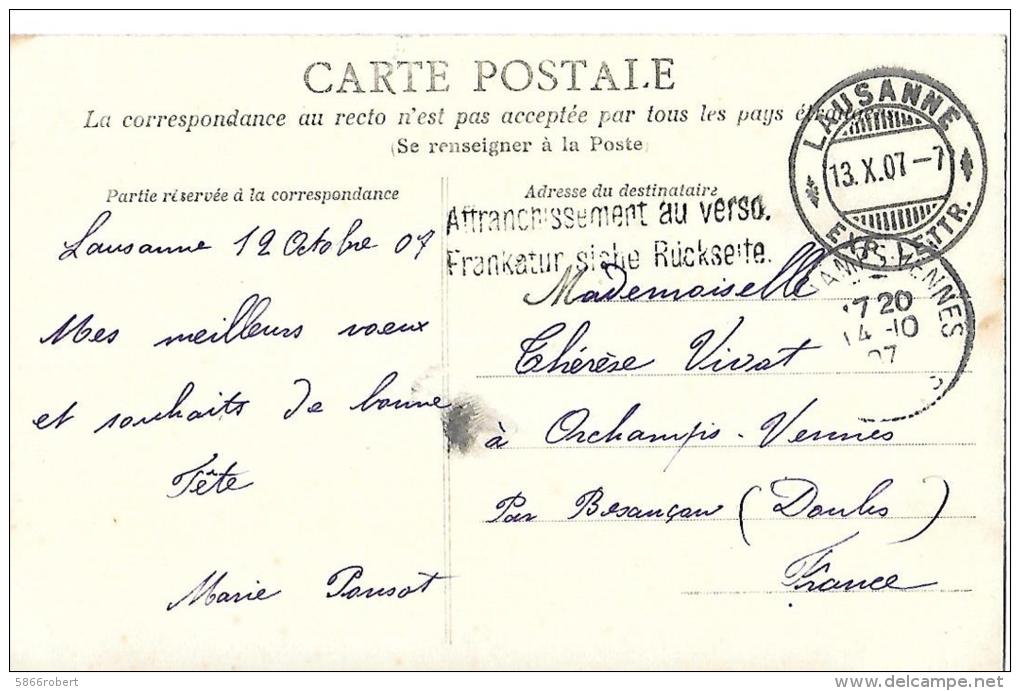 CARTE POSTALE
La correspondance au recto n'est pas acceptée par tous les pays étrangers
(Se renseigner à la Poste)
Partie réservée à la correspondance
Adresse du destinataire
LAUSANNE
13.X.07-7
EXP. LETTR.
Affranchissement au verso.
Frankatur siehe Rückseite.
Lausanne 12 Octobre 07
Mes meilleurs voeux
et souhaits de bonne
Fête
Marie Ponsot
Mademoiselle
Thérèse Vivot
à Orchamps-Vennes
Par Besançon (Doubs)
France
AMPS-VENNES
17 20
14-10
07
5866robert
www.delcampe.net